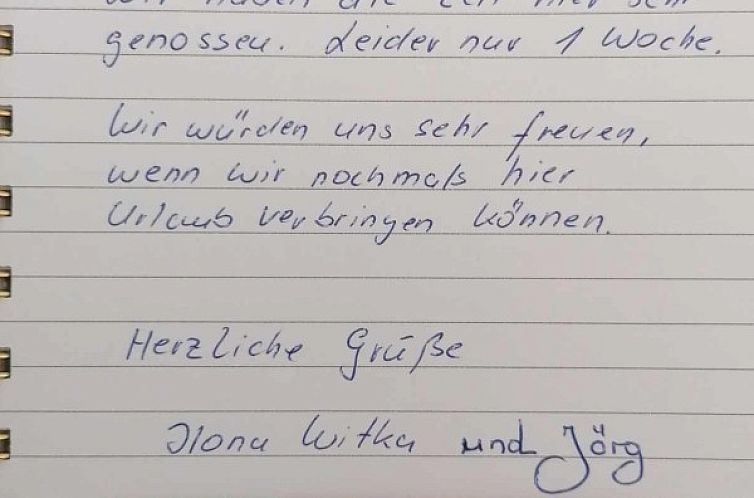 wir haben die Zeit hier sehr
genossen. Leider nur 1 Woche.
Wir würden uns sehr freuen,
wenn wir nochmals hier
Urlaub verbringen können.
Herzliche Grüße
Ilona Witka und Jörg